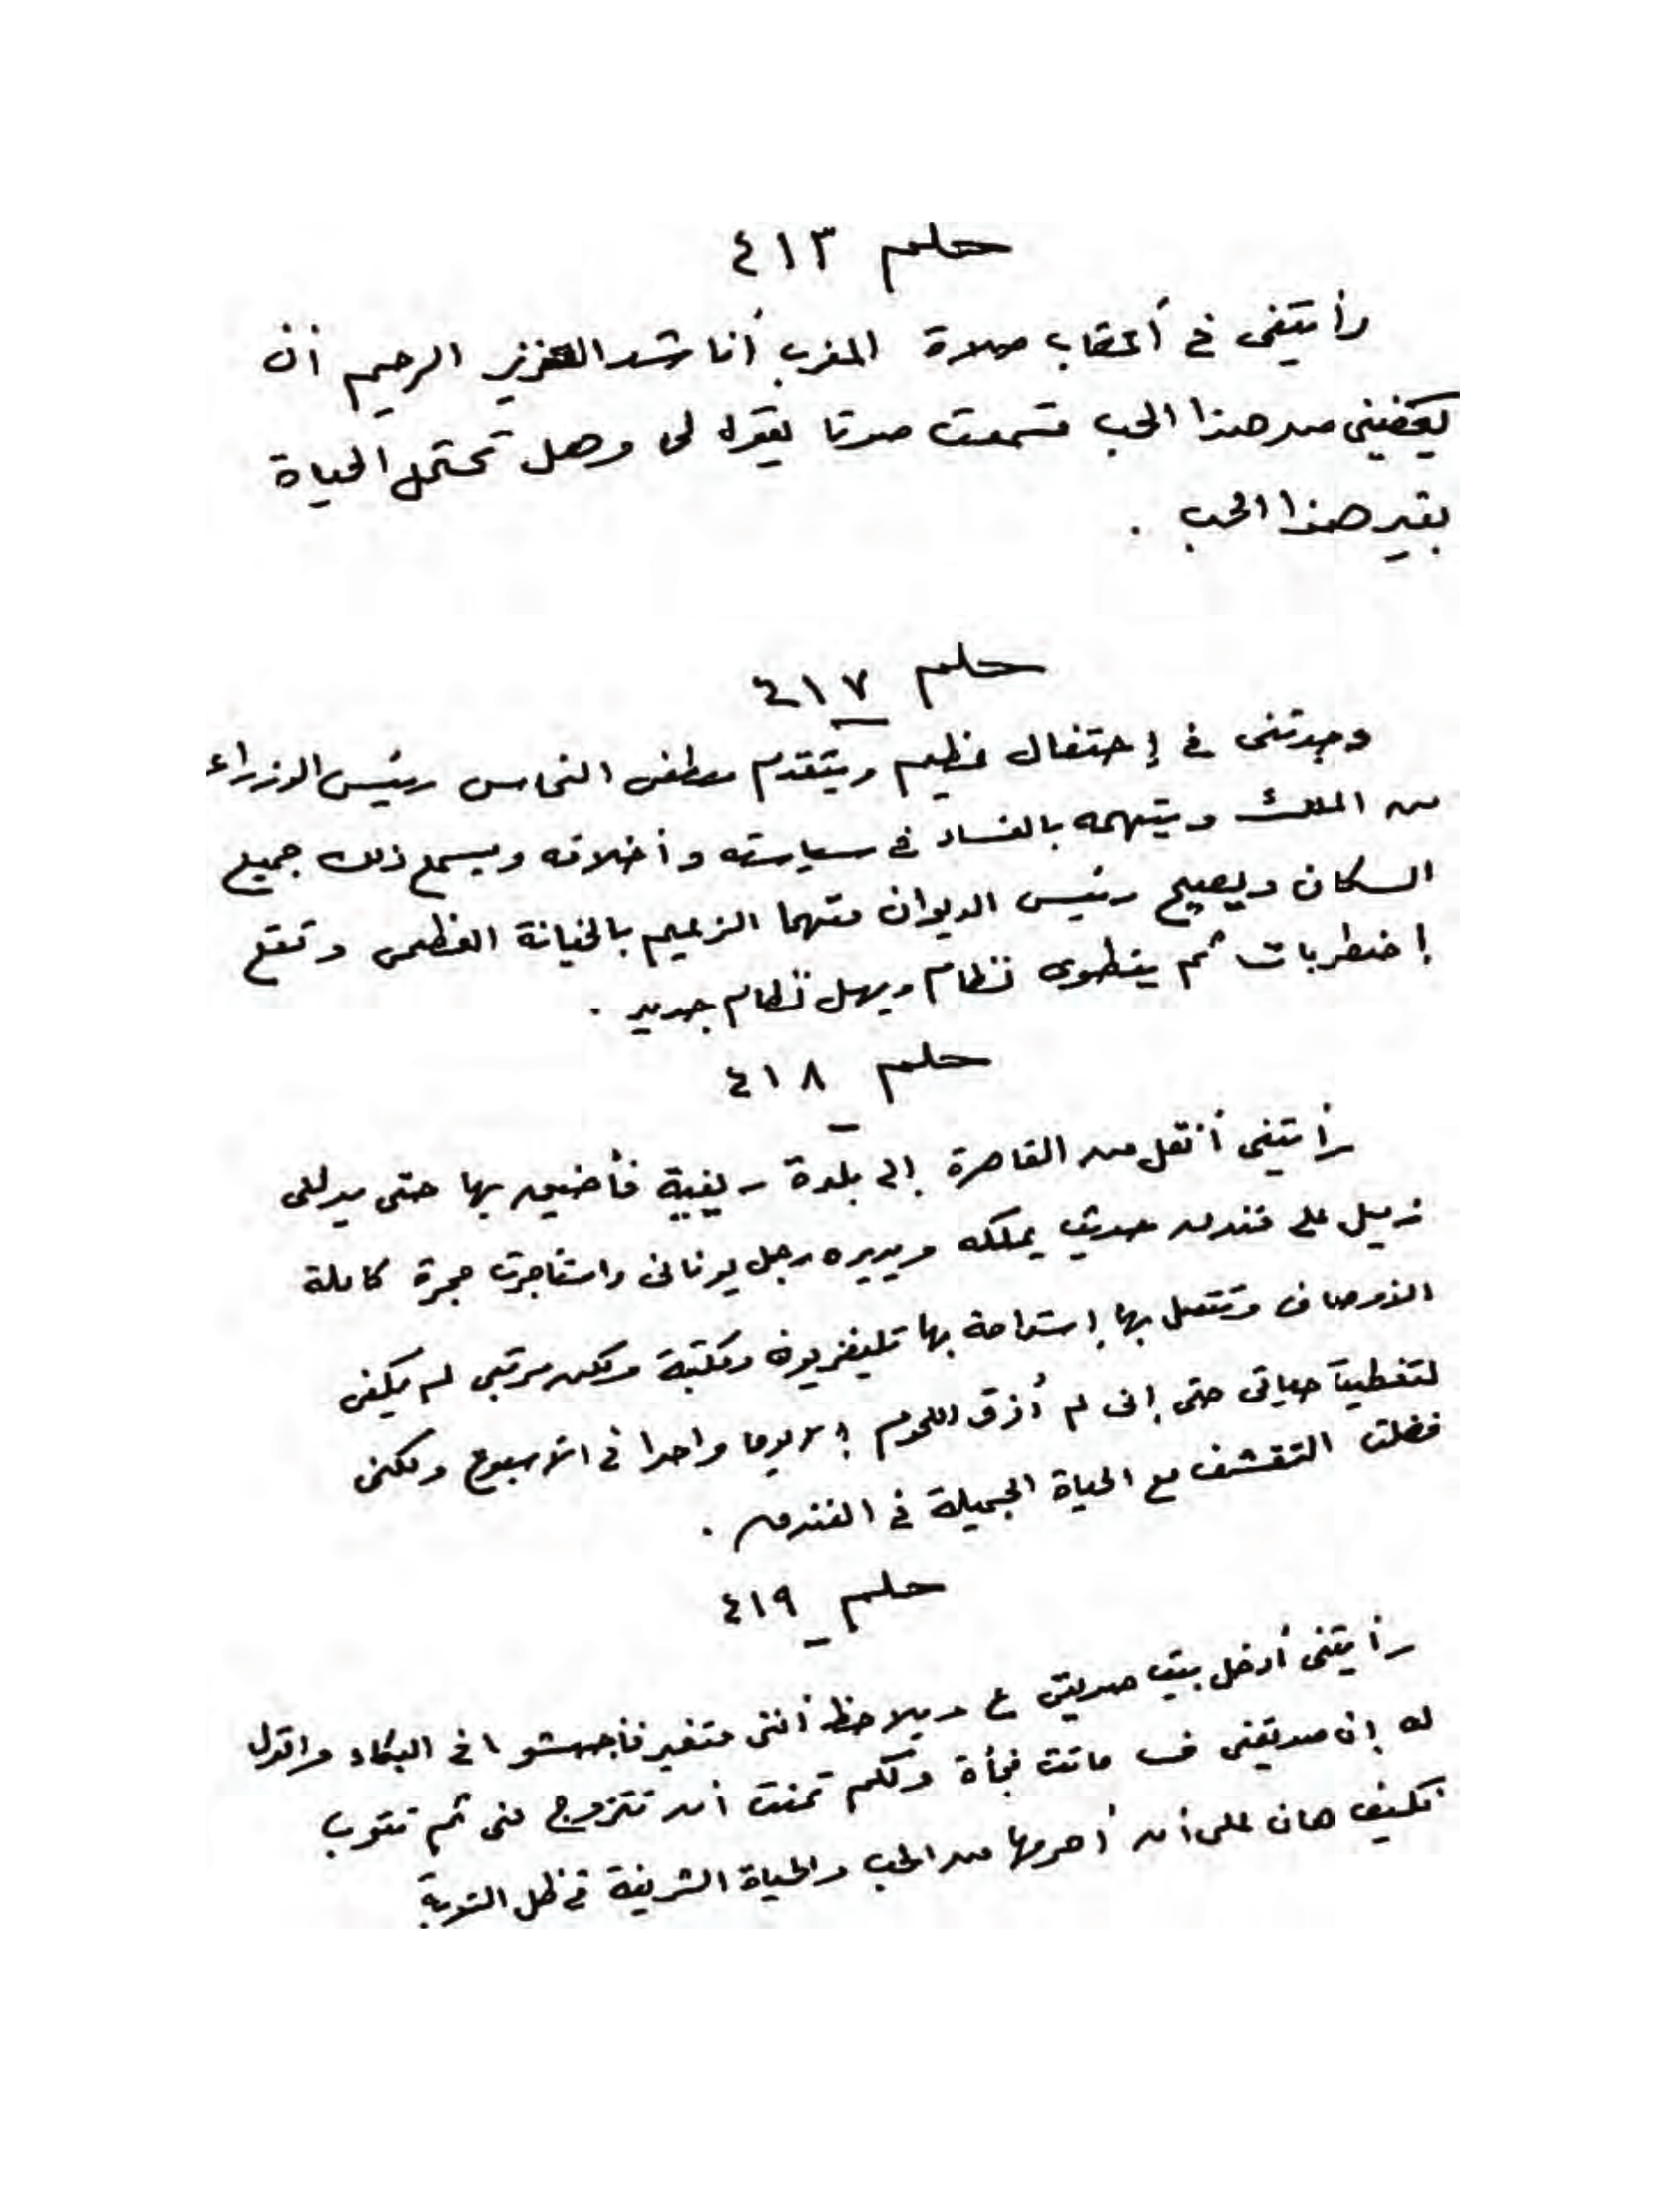 حلم ٤١٣
رأيتنى فى أعقاب صلاة المغرب أناشد العزيز الرحيم أن
يعفينى من هذا الحب فسمعت صوتا يقول لى وهل تحتمل الحياة
بغير هذا الحب .
حلم ٤١٧
وجدتنى فى إحتفال عظيم ويتقدم مصطفى النحاس رئيس الوزراء
من الملك ويتهمه بالفساد فى سياسته وأخلاقه ويسمع ذلك جميع
السكان ويصيح رئيس الديوان متهما الزعيم بالخيانة العظمى وتقع
إضطربات ثم ينطوى نظام ويهل نظام جديد .
حلم ٤١٨
رأيتنى أنقل من القاهرة إلى بلدة ريفية فأضيق بها حتى يدلنى
زميل على فندق حديث يملكه ويديره رجل يونانى واستأجرت حجرة كاملة
الأوصاف وتتصل بها إستراحة بها تليفزيون ومكتبة ولكن مرتبى لم يكفى
لتغطية حياتى حتى إنى لم أذق اللحوم إلا يوما واحدا فى الأسبوع ولكنى
فضلت التقشف مع الحياة الجميلة فى الفندق .
حلم ٤١٩
رأيتنى أدخل بيت صديقى ع ويلاحظ أننى متغير فأجهشوا فى البكاء واقول
له إن صديقتى ف ماتت فجأة ولكم تمنت أن تتزوج منى ثم تتوب
فكيف هان على أن أحرمها من الحب والحياة الشريفة فى ظل التوبة